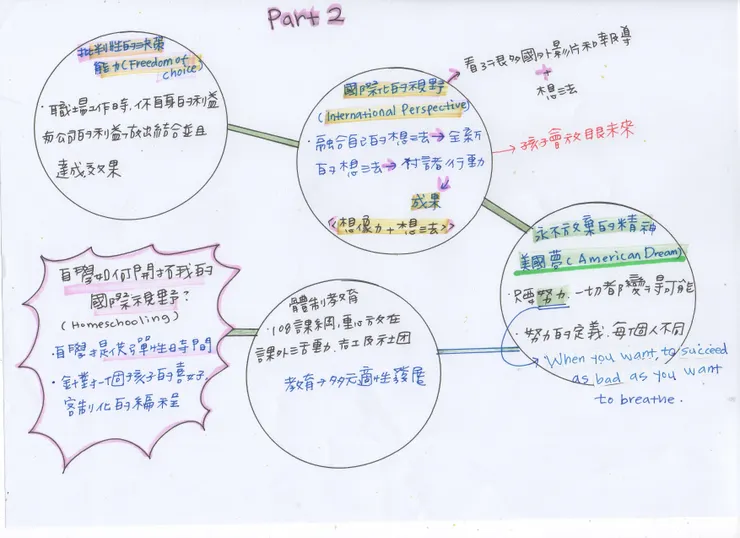 Part 2
批判性的決策
能力(Freedom of
choice)
・職場工作時,你自身的利益
與公司的利益做出結合並且
達成效果
國際化的視野
(International Perspective)
・融合自己的想法→全新
的想法→付諸行動
成果
《想像力+想法》
看了很多國外影片和報導
+
想法
→孩子會放眼未來
永不放棄的精神
美國夢(American Dream)
・只要努力,一切都變得可能
・努力的定義,每個人不同
When you want to succeed
as bad as you want
to breathe.
體制教育
・108課綱,重心放在
課外活動、志工及社團
教育→多元適性發展
自學如何開拓我的
國際視野?
(Homeschooling)
・自學提供彈性時間
・針對一個孩子的喜好,
客制化的編程